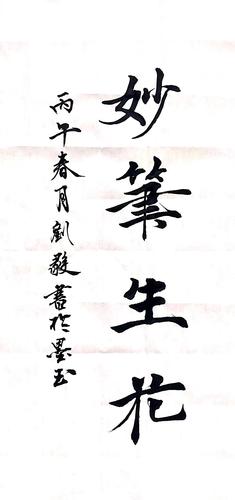 妙筆生花
丙午春月劉敬書於墨玉